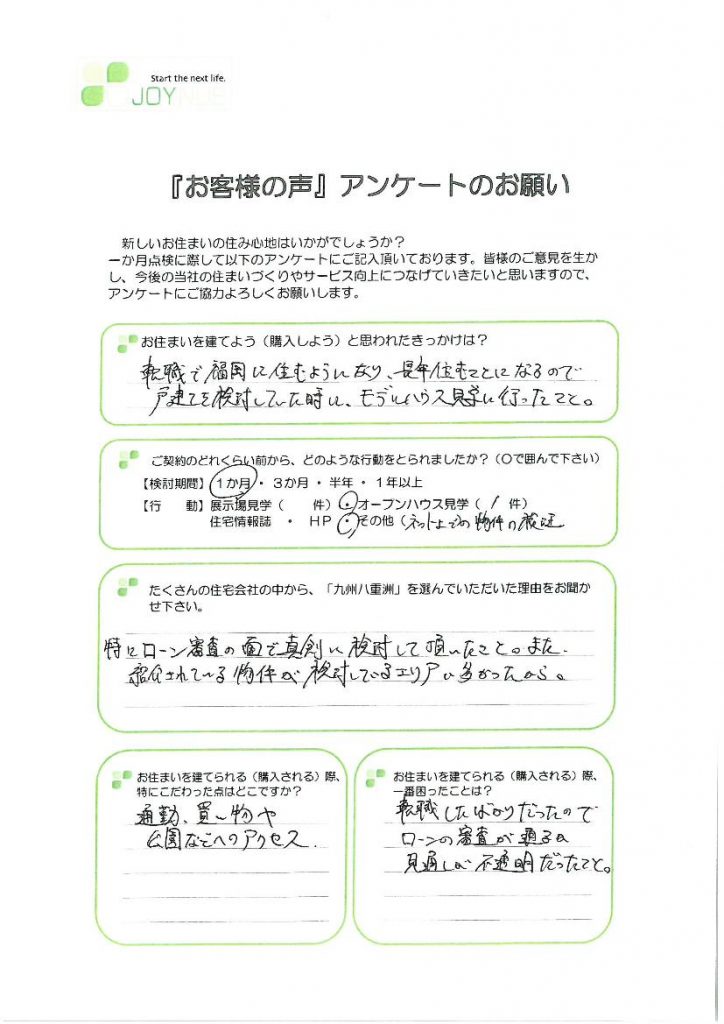 Start the next life.
JOYNUS
『お客様の声』アンケートのお願い
新しいお住まいの住み心地はいかがでしょうか？
一か月点検に際して以下のアンケートにご記入頂いております。皆様のご意見を生か
し、今後の当社の住まいづくりやサービス向上につなげていきたいと思いますので、
アンケートにご協力よろしくお願いします。
お住まいを建てよう（購入しよう）と思われたきっかけは？
転職で福岡に住むようになり、長年住むことになるので
戸建てを検討していた時に、モデルハウス見学に行ったこと。
ご契約のどれくらい前から、どのような行動をとられましたか？（〇で囲んで下さい）
【検討期間】１か月・３か月・半年・１年以上
【行　動】展示場見学（　　件）・オープンハウス見学（ 1 件）
住宅情報誌　・　ＨＰ・その他（ネット上での物件の検索
たくさんの住宅会社の中から、「九州八重洲」を選んでいただいた理由をお聞か
せ下さい。
特にローン審査の面で真剣に検討して頂いたこと。また、
紹介されている物件が検討しているエリアに多かったから。
お住まいを建てられる（購入される）際、
特にこだわった点はどこですか？
通勤、買い物や
公園などへのアクセス．
お住まいを建てられる（購入される）際、
一番困ったことは？
転職したばかりだったので
ローンの審査が通るか
見通しが不透明だったこと。